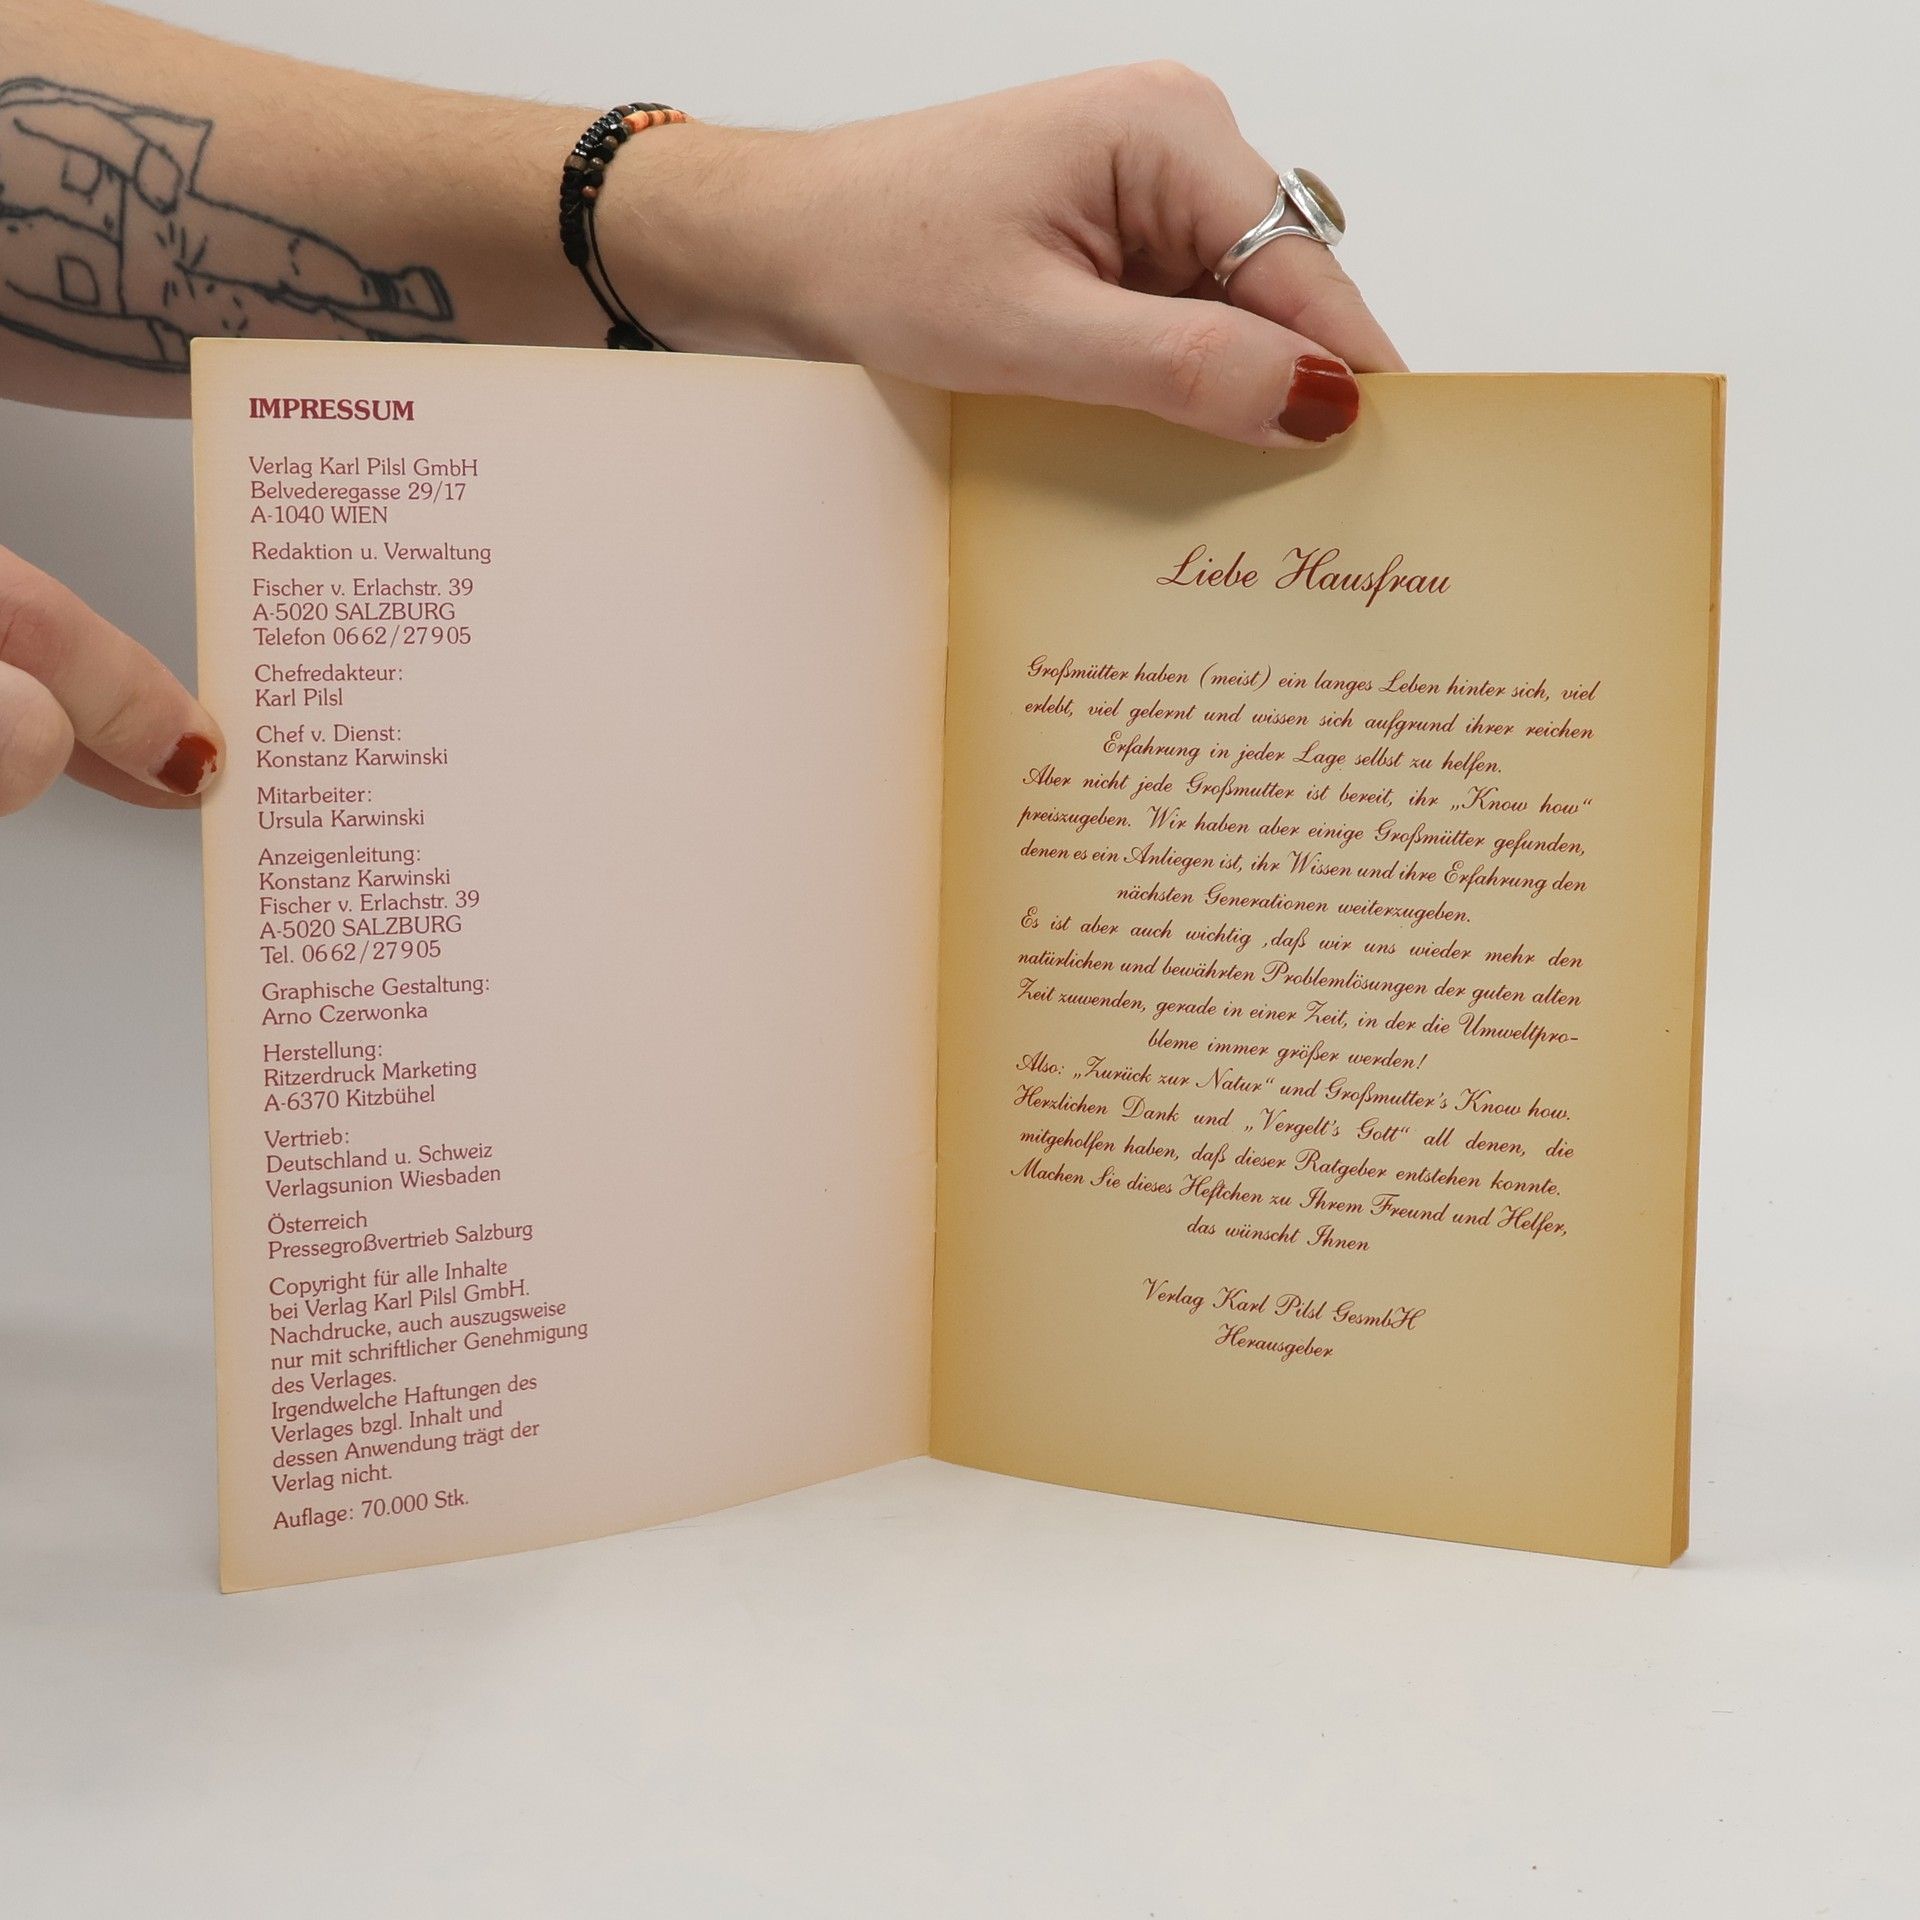 IMPRESSUM
Verlag Karl Pilsl GmbH
Belvederegasse 29/17
A-1040 WIEN
Redaktion u. Verwaltung
Fischer v. Erlachstr. 39
A-5020 SALZBURG
Telefon 0662/27905
Chefredakteur:
Karl Pilsl
Chef v. Dienst:
Konstanz Karwinski
Mitarbeiter:
Ursula Karwinski
Anzeigenleitung:
Konstanz Karwinski
Fischer v. Erlachstr. 39
A-5020 SALZBURG
Tel. 0662/27905
Graphische Gestaltung:
Arno Czerwonka
Herstellung:
Ritzerdruck Marketing
A-6370 Kitzbühel
Vertrieb:
Deutschland u. Schweiz
Verlagsunion Wiesbaden
Österreich
Pressegroßvertrieb Salzburg
Copyright für alle Inhalte
bei Verlag Karl Pilsl GmbH.
Nachdrucke, auch auszugsweise
nur mit schriftlicher Genehmigung
des Verlages.
Irgendwelche Haftungen des
Verlages bzgl. Inhalt und
dessen Anwendung trägt der
Verlag nicht.
Auflage: 70.000 Stk.
Liebe Hausfrau
Großmütter haben (meist) ein langes Leben hinter sich, viel
erlebt, viel gelernt und wissen sich aufgrund ihrer reichen
Erfahrung in jeder Lage selbst zu helfen.
Aber nicht jede Großmutter ist bereit, ihr „Know how“
preiszugeben. Wir haben aber einige Großmütter gefunden,
denen es ein Anliegen ist, ihr Wissen und ihre Erfahrung den
nächsten Generationen weiterzugeben.
Es ist aber auch wichtig ,daß wir uns wieder mehr den
natürlichen und bewährten Problemlösungen der guten alten
Zeit zuwenden, gerade in einer Zeit, in der die Umweltpro-
bleme immer größer werden!
Also: „Zurück zur Natur“ und Großmutter's Know how.
Herzlichen Dank und „Vergelt's Gott“ all denen, die
mitgeholfen haben, daß dieser Ratgeber entstehen konnte.
Machen Sie dieses Heftchen zu Ihrem Freund und Helfer,
das wünscht Ihnen
Verlag Karl Pilsl GesmbH
Herausgeber